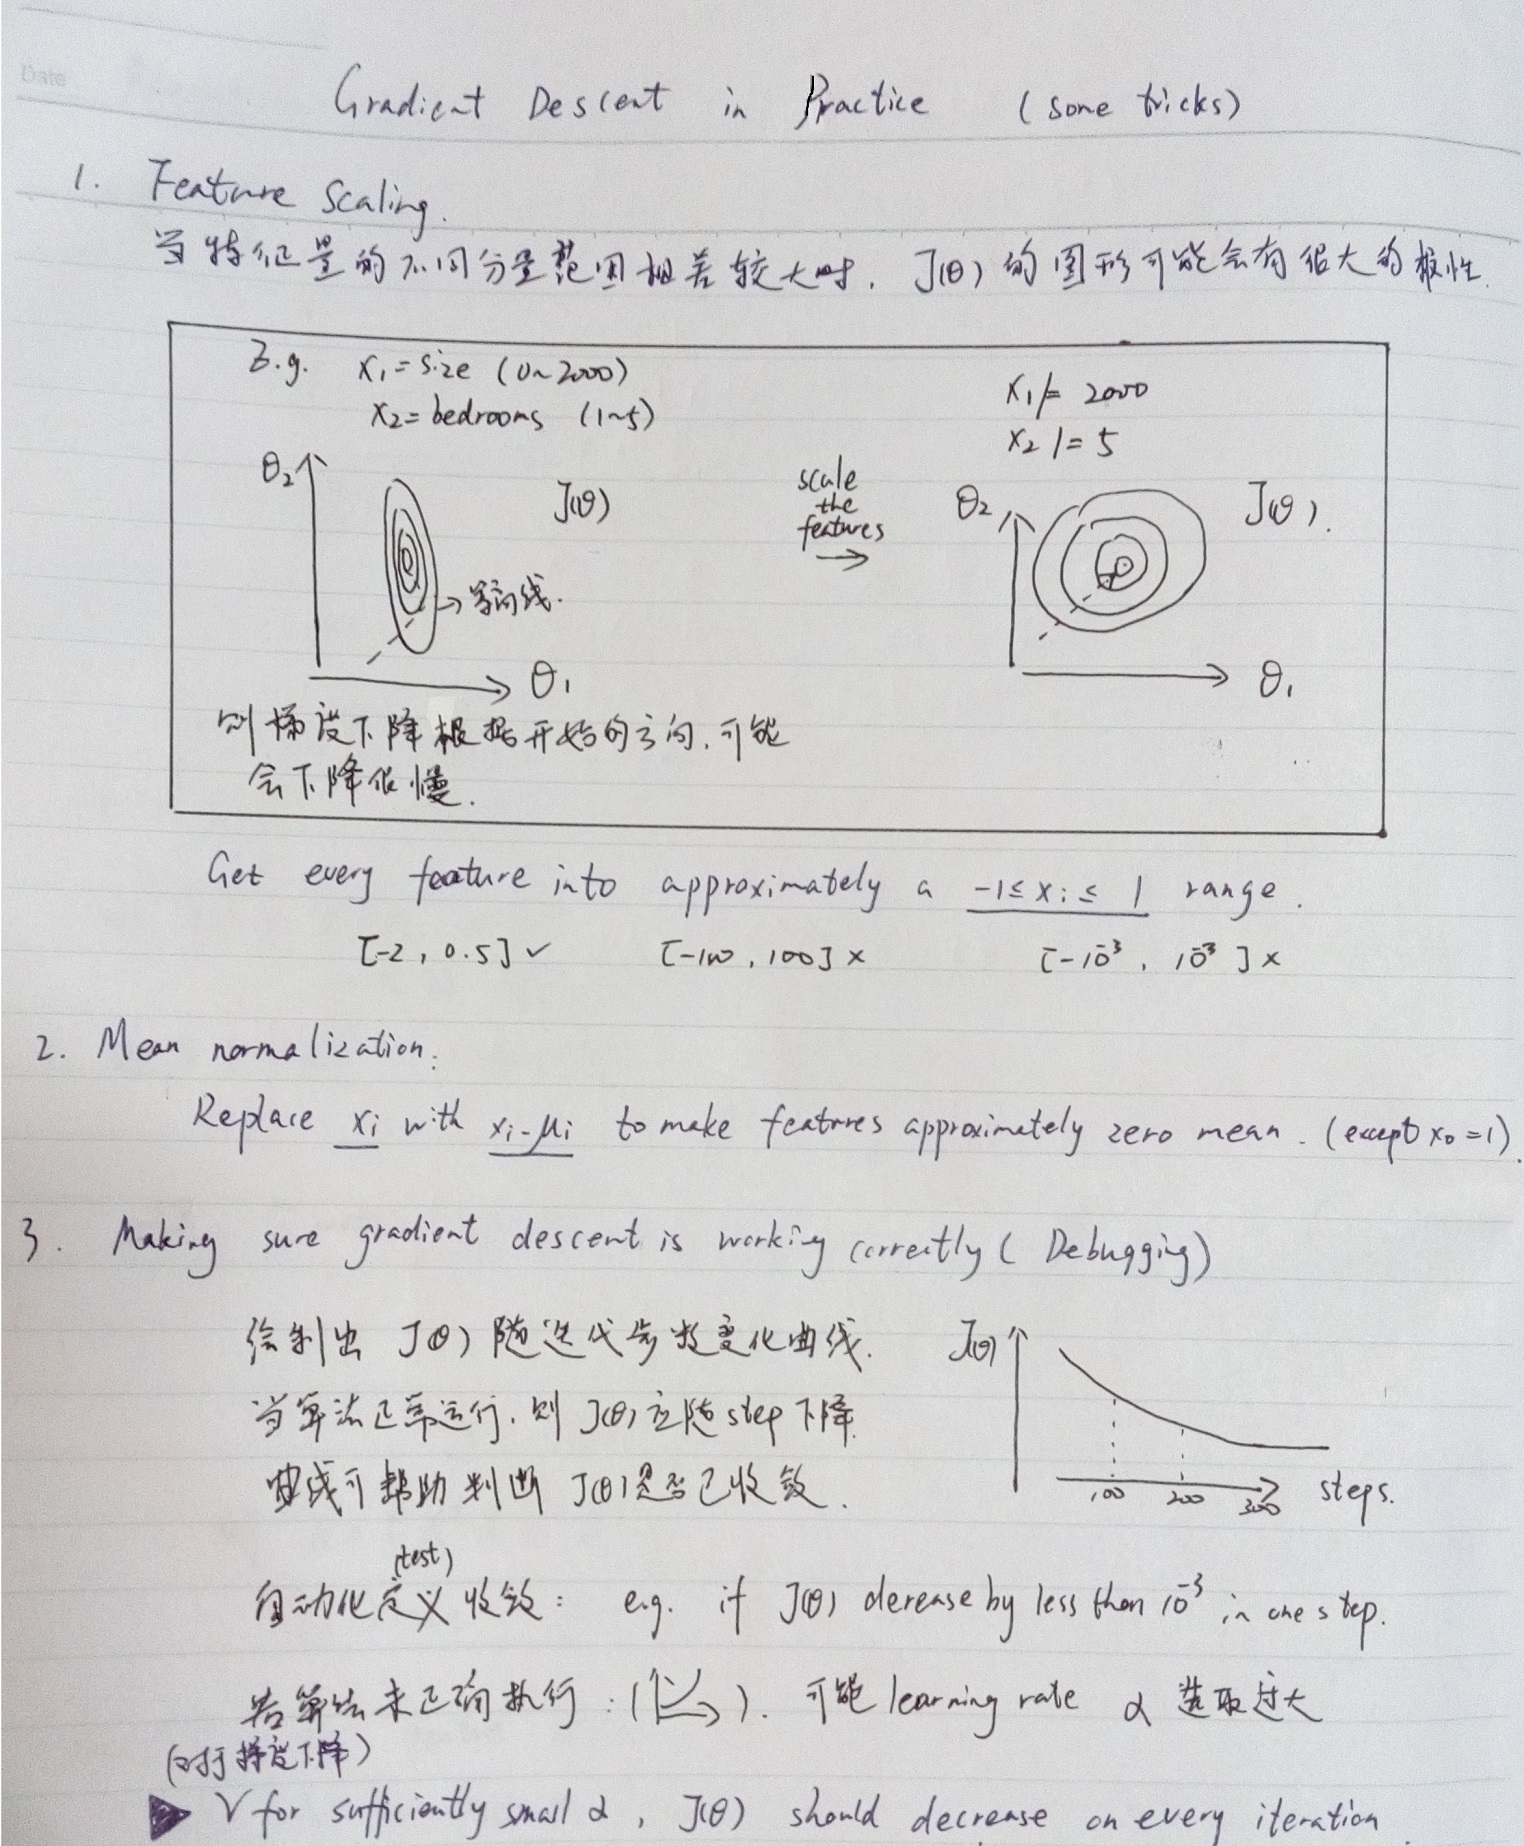 Date
Gradient Descent in Practice (some tricks)
1. Feature Scaling.
当特征量的不同分量范围相差较大时, J(θ) 的图形可能会有很大的极性.
E.g. x₁=size (0~2000)
x₂=bedrooms (1~5)
x₁/= 2000
x₂ /= 5
θ₂
J(θ)
scale
the
features
→
θ₂
J(θ).
→等高线.
θ₁
θ₁
则梯度下降根据开始的方向, 可能
会下降很慢.
Get every feature into approximately a -1≤xᵢ≤ 1 range.
[-2, 0.5]✓ [-100, 100]× [-10⁻³, 10⁻³]×
2. Mean normalization.
Replace xᵢ with xᵢ-μᵢ to make features approximately zero mean. (except x₀=1).
3. Making sure gradient descent is working correctly ( Debugging)
绘制出 J(θ) 随迭代步数变化曲线.
J(θ)
当算法正常运行, 则 J(θ) 应随 step 下降.
曲线可帮助判断 J(θ) 是否已收敛.
100 200 300 steps.
(test)
自动化定义收敛: e.g. if J(θ) derease by less than 10⁻³ in one step.
若算法未正确执行: ( ). 可能 learning rate α 选取过大
(对于梯度下降)
▶ √ for sufficiently small α, J(θ) should decrease on every iteration.